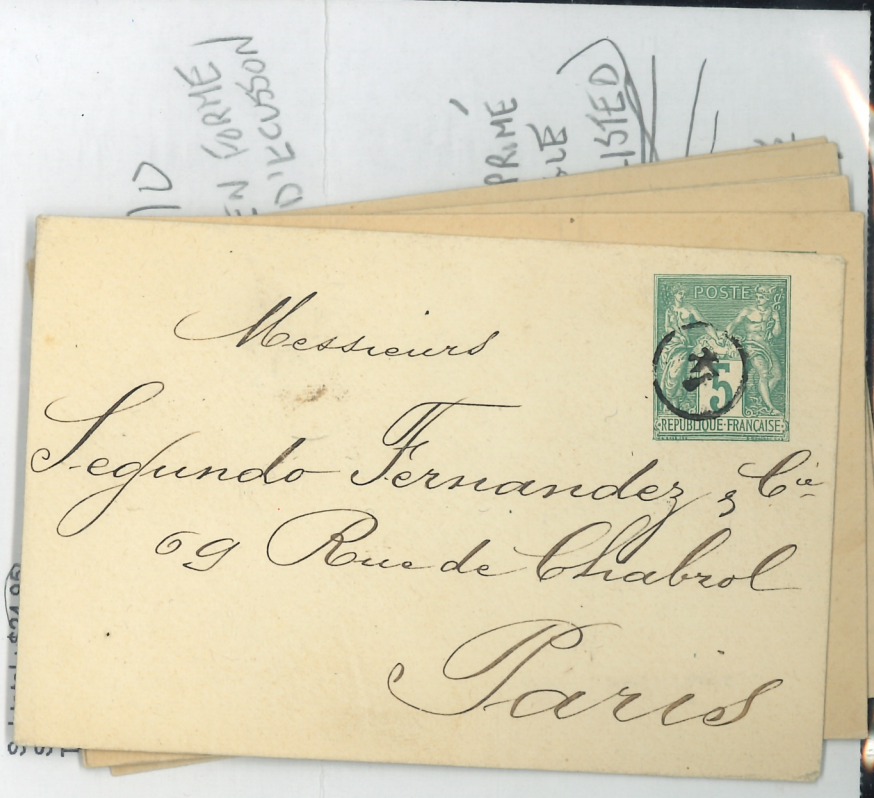 EN FORMÉ
D'ECUSSON
PRIMÉ
POSTE
5
REPUBLIQUE·FRANÇAISE
Messieurs
Segundo Fernandez & Cie
69 Rue de Chabrol
Paris
$24.95